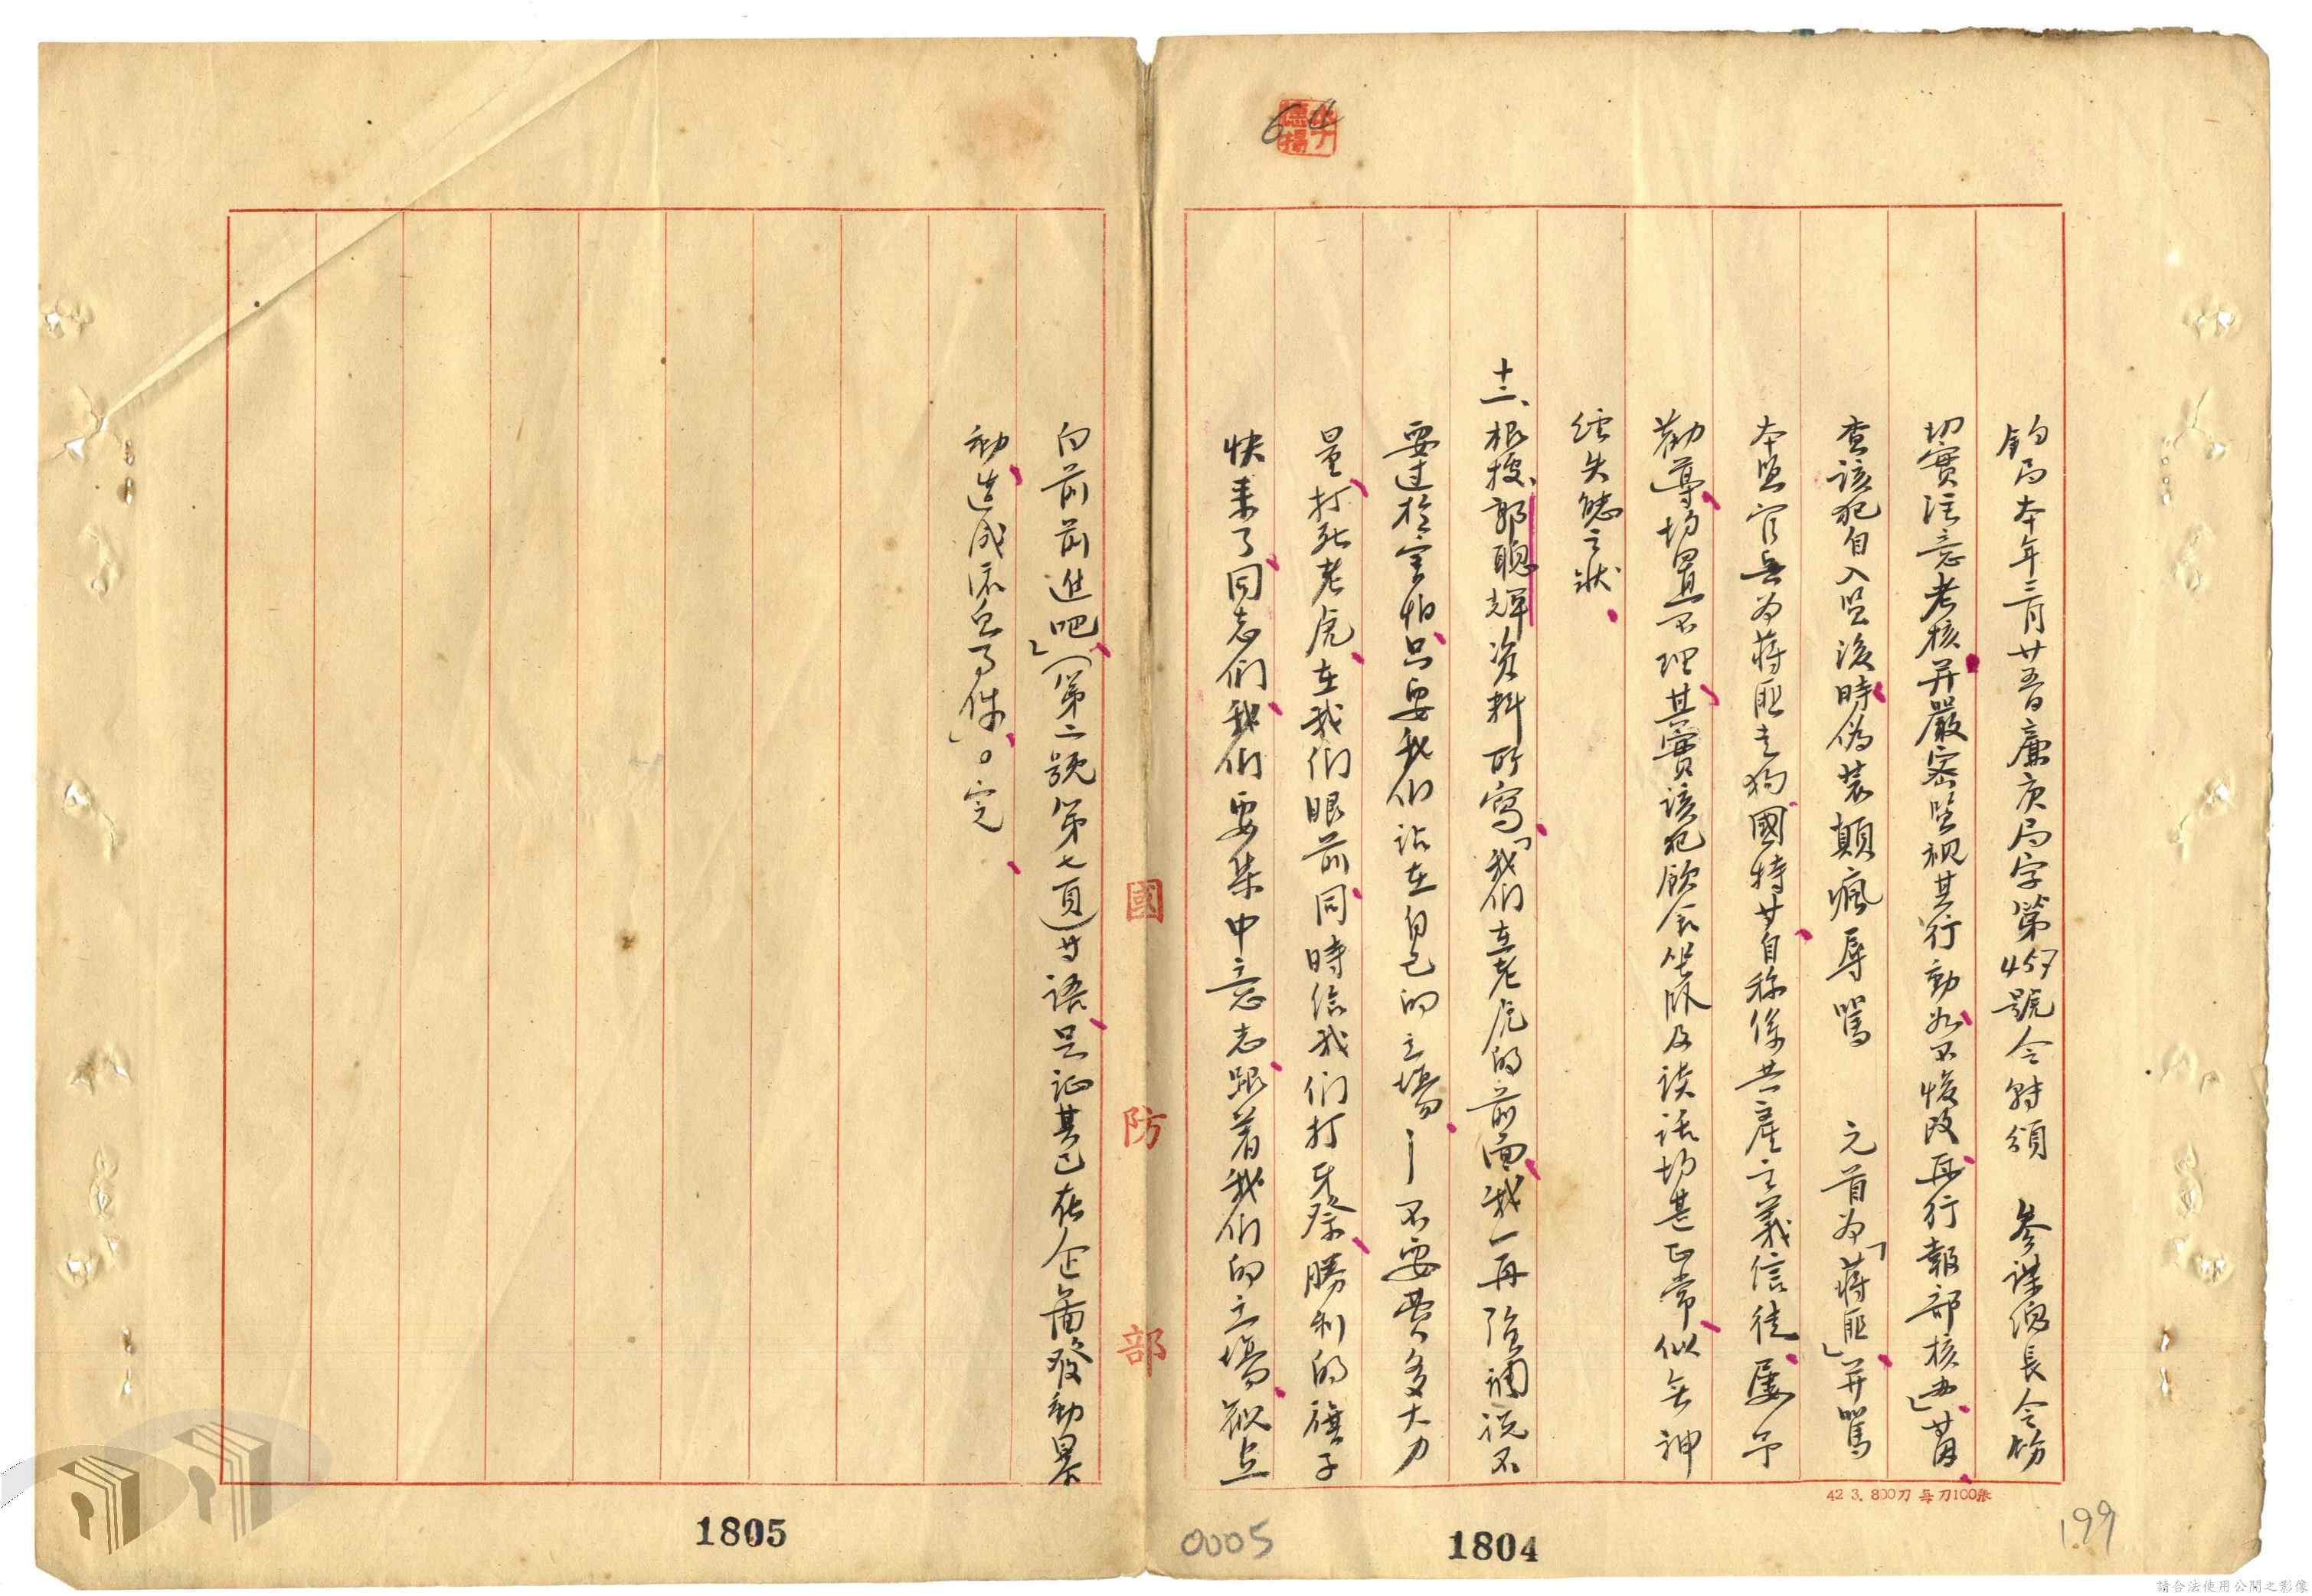 鈞局本年三月廿五日廉庚局字第457號令轉頒　參謀總長令飭
切實注意考核并嚴密監視其行動如不悛改再行報部核办」等因
查該犯自入監後時偽裝顛瘋辱罵　元首為「蔣匪」并罵
本監官兵為蔣匪走狗國特等自称係共產主義信徒屢予
勸導均置不理其實該犯飲食坐臥及談話均甚正常似無神
經失態之狀
十二、根據郭聰輝資料所寫「我们在老虎的前面我一再強調説不
要过於害怕只要我们站在自己的立場－不要費多大力
量打死老虎在我们眼前同時給我们打牙祭勝利的旗子
快来了同志们我们要集中意志跟着我们的立場观点
向前前进吧」（第二號第七頁）等語足证其已在企圖發動暴
動造成流血事件」。完
國防部
42 3. 800刀 每刀100張
64
德揚
199
0005
1804
1805
請合法使用公開之影像